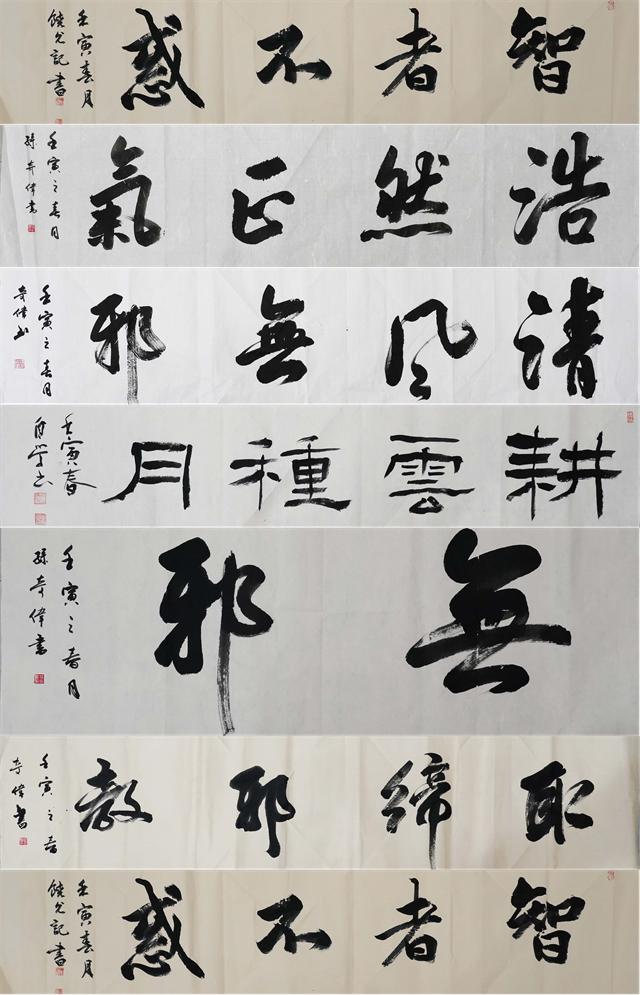 智者不惑
壬寅春月
饒光記書
浩然正氣
壬寅之春月
孫奇偉書
清風無邪
壬寅之春月
奇偉書
耕雲種月
壬寅春
無邪
壬寅之春月
孫奇偉書
取締邪教
壬寅之春
奇偉書
智者不惑
壬寅春月
饒光記書